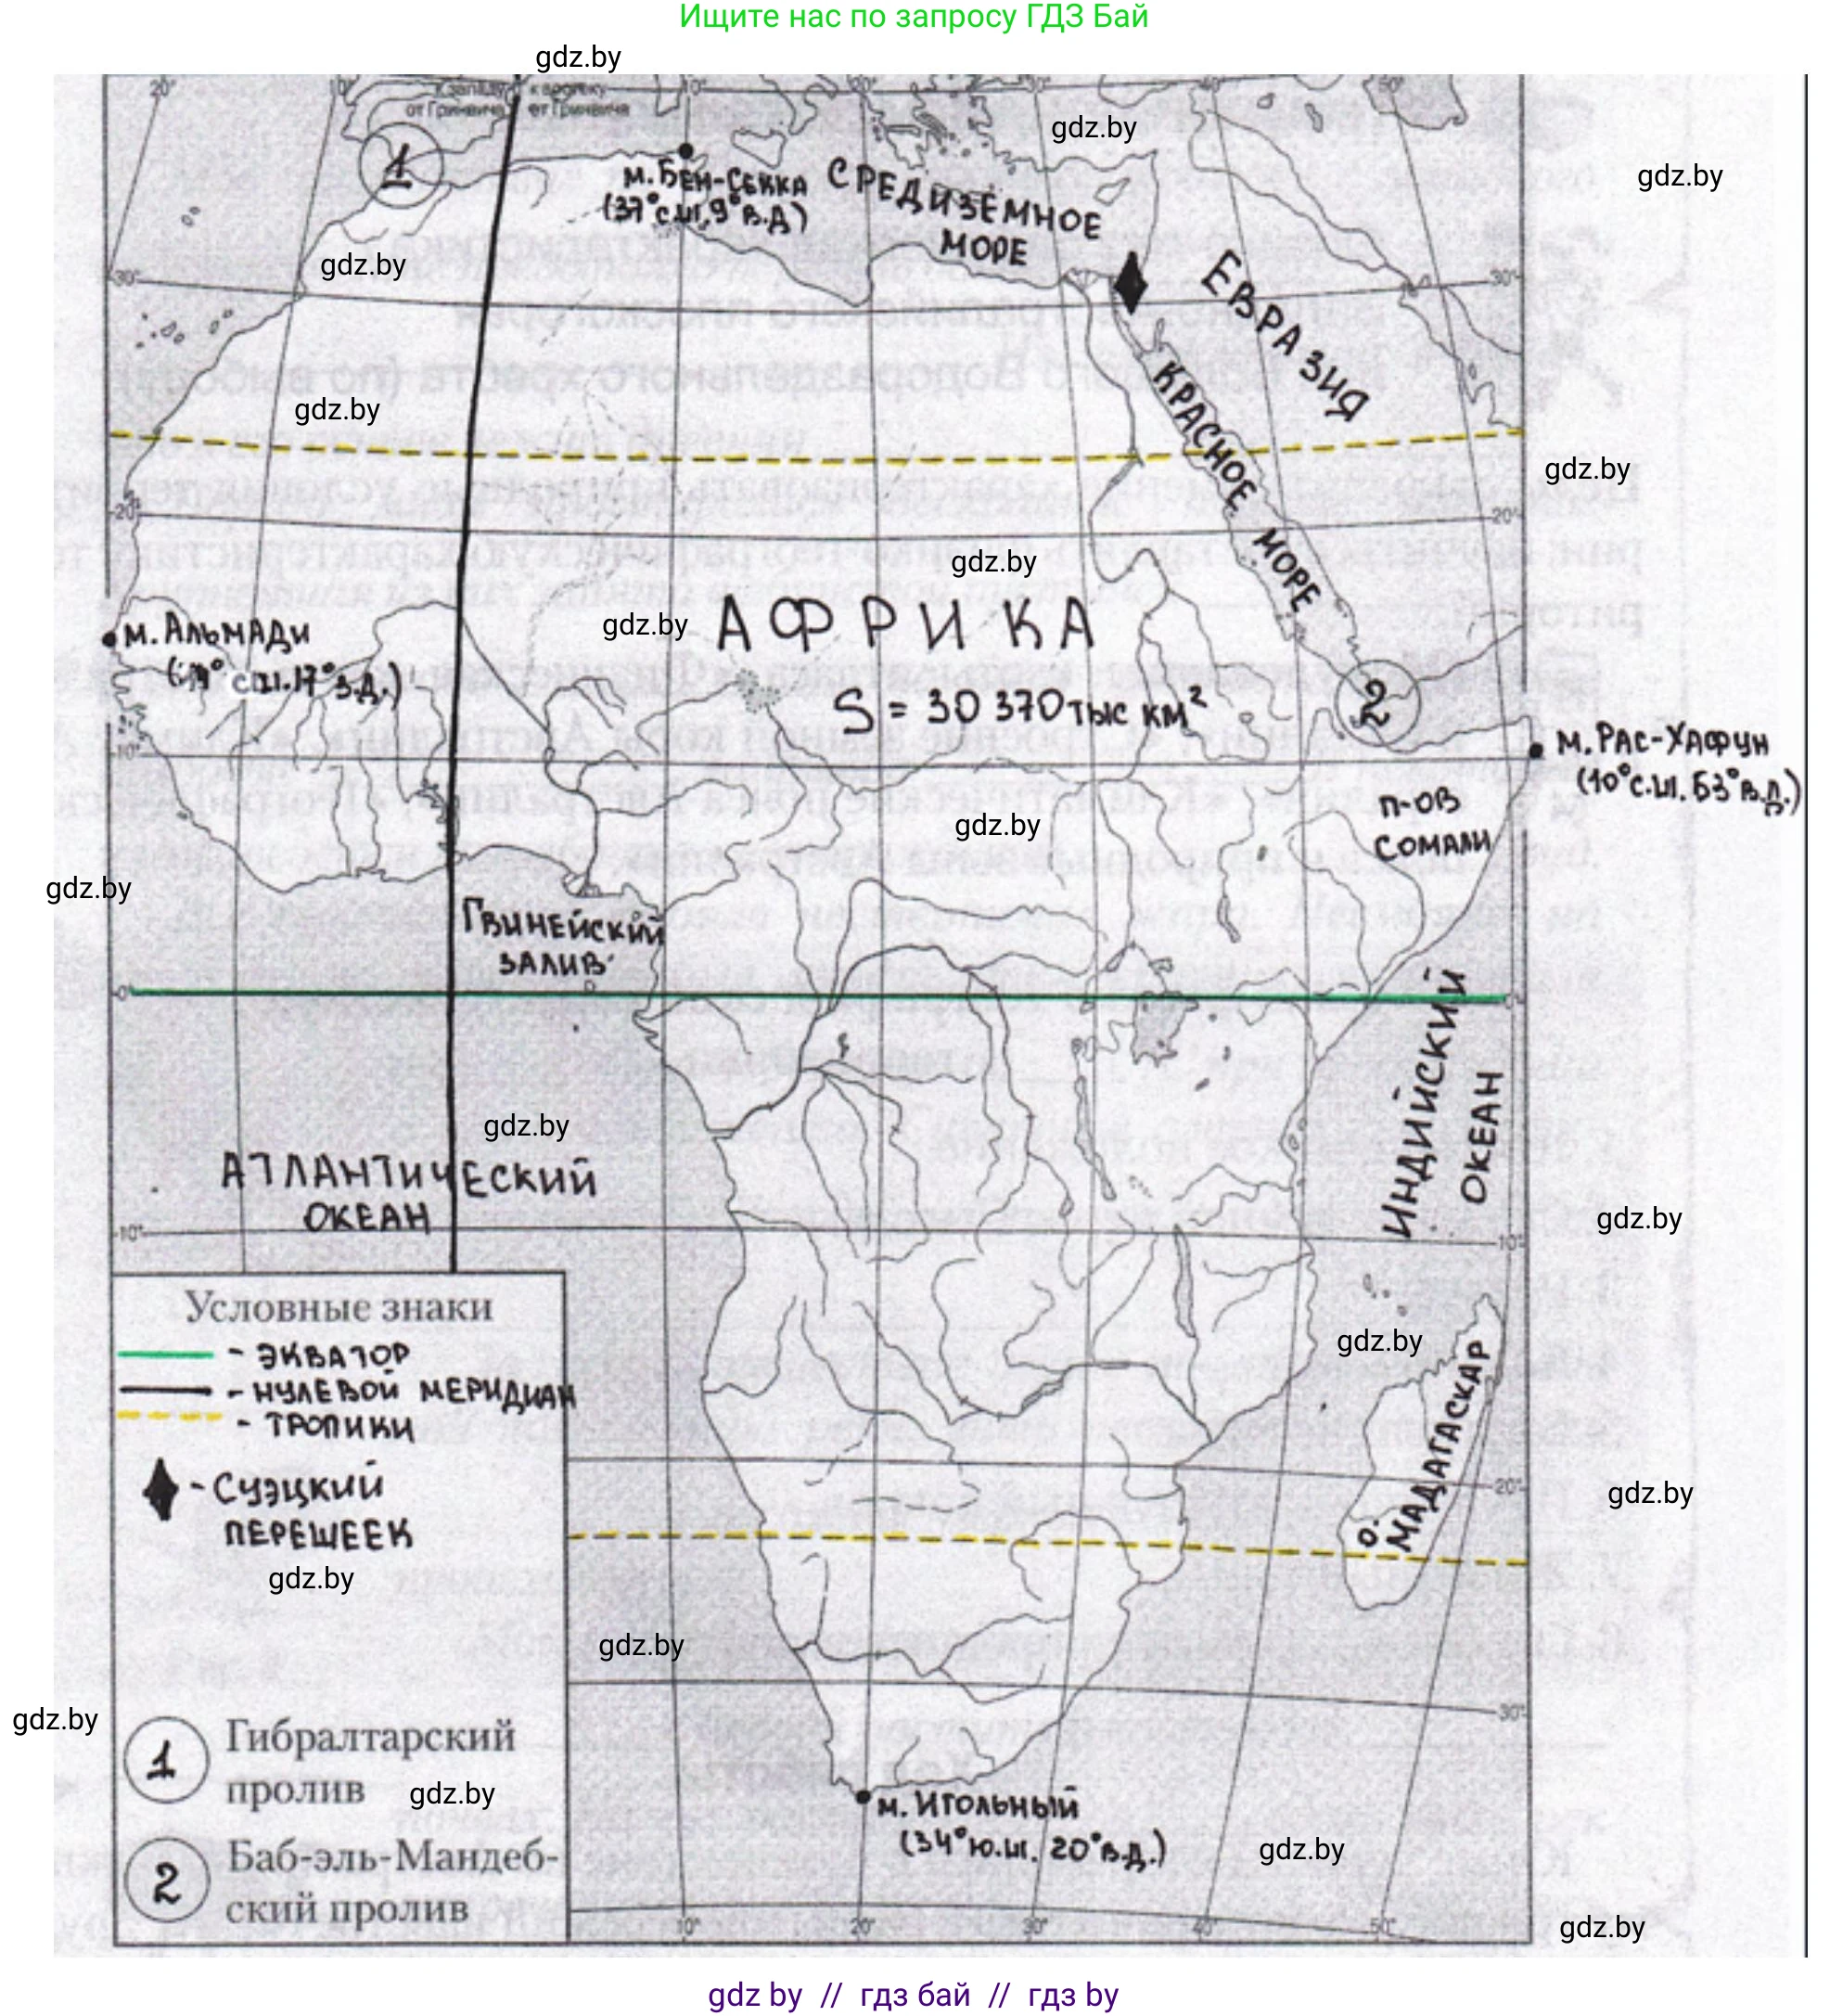 Ищите нас по запросу ГДЗ Бай
gdz.by
20° 10° 10° 20° 30° 40° 50°
К западу к востоку
от Гринвича от Гринвича
gdz.by
1
м. Бен-Секка
(37° с.ш. 9° в.д)
СРЕДИЗЕМНОЕ
МОРЕ
gdz.by
gdz.by
30° 30°
ЕВРАЗИЯ
gdz.by
КРАСНОЕ МОРЕ
gdz.by
20° 20°
gdz.by
АФРИКА
gdz.by
м. Альмади
с.ш. 17° з.д.)
S = 30 370 тыс км²
2
м. Рас-Хафун
(10° с.ш. 53° в.д.)
10°
п-ов
Сомали
gdz.by
gdz.by
Гвинейский
залив
0° 0°
Индийский
океан
gdz.by
Атлантический
океан
gdz.by
10° 10°
Условные знаки
- экватор
- нулевой меридиан
- тропики
- Суэцкий
перешеек
gdz.by
gdz.by
о. Мадагаскар
gdz.by
20°
gdz.by
gdz.by
30°
1 Гибралтарский
пролив
gdz.by
м. Игольный
(34° ю.ш. 20° в.д.)
gdz.by
2 Баб-эль-Мандеб-
ский пролив
10° 20° 30° 40° 50°
gdz.by
gdz by // гдз бай // гдз by